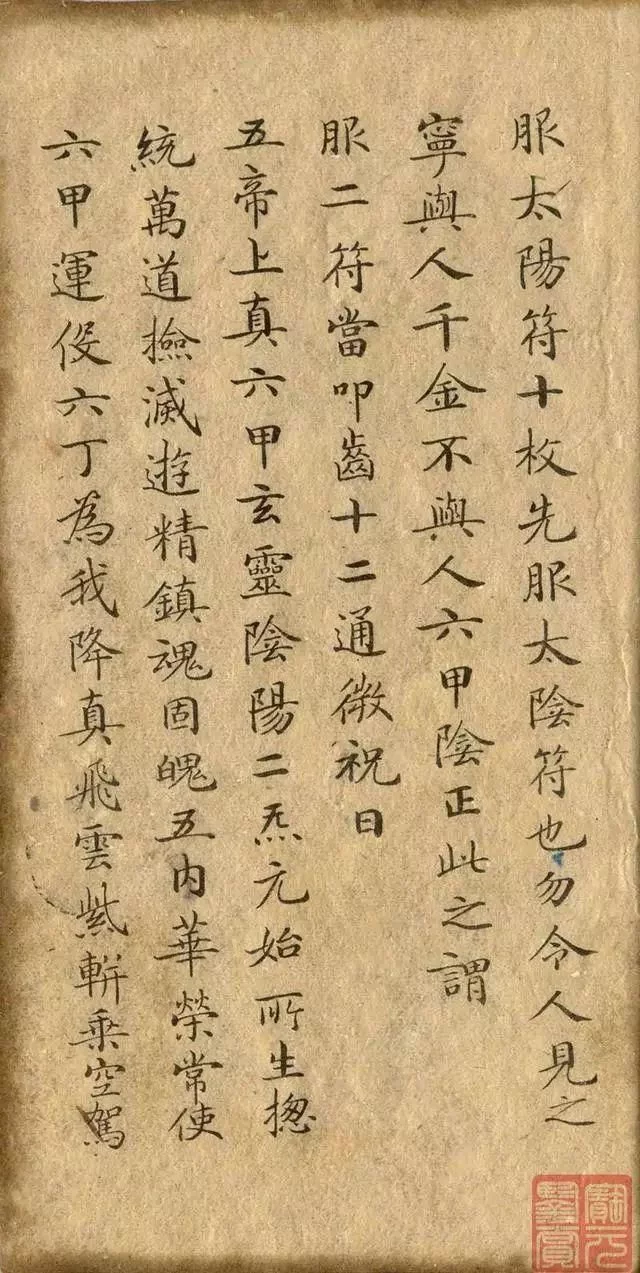 服太陽符十枚先服太陰符也勿令人見之
寧與人千金不與人六甲陰正此之謂
服二符當叩齒十二通微祝曰
五帝上真六甲玄靈陰陽二炁元始所生揔
統萬道撿滅遊精鎮魂固魄五内華榮常使
六甲運役六丁為我降真飛雲紫軿乗空駕